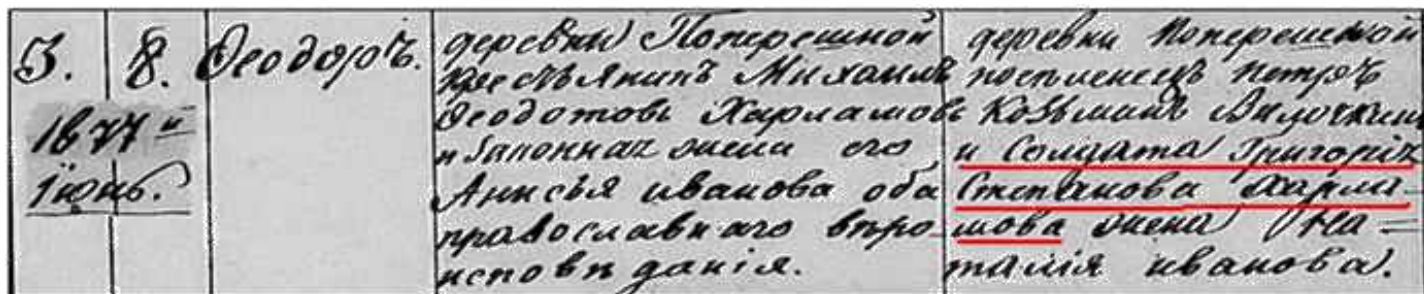 3. 8. Ѳеодоръ.
1877 й
Іюнь.
деревни Поперешной
крестьянинъ Михаилъ
Ѳеодотовъ Харламовъ
и законная жена его
Анисья иванова оба
православнаго вѣро-
исповѣданія.
деревни Поперешной
поселенецъ Петръ
Козьминъ
и Солдата Григорія
Степанова Харла-
мова жена На-
талія иванова.